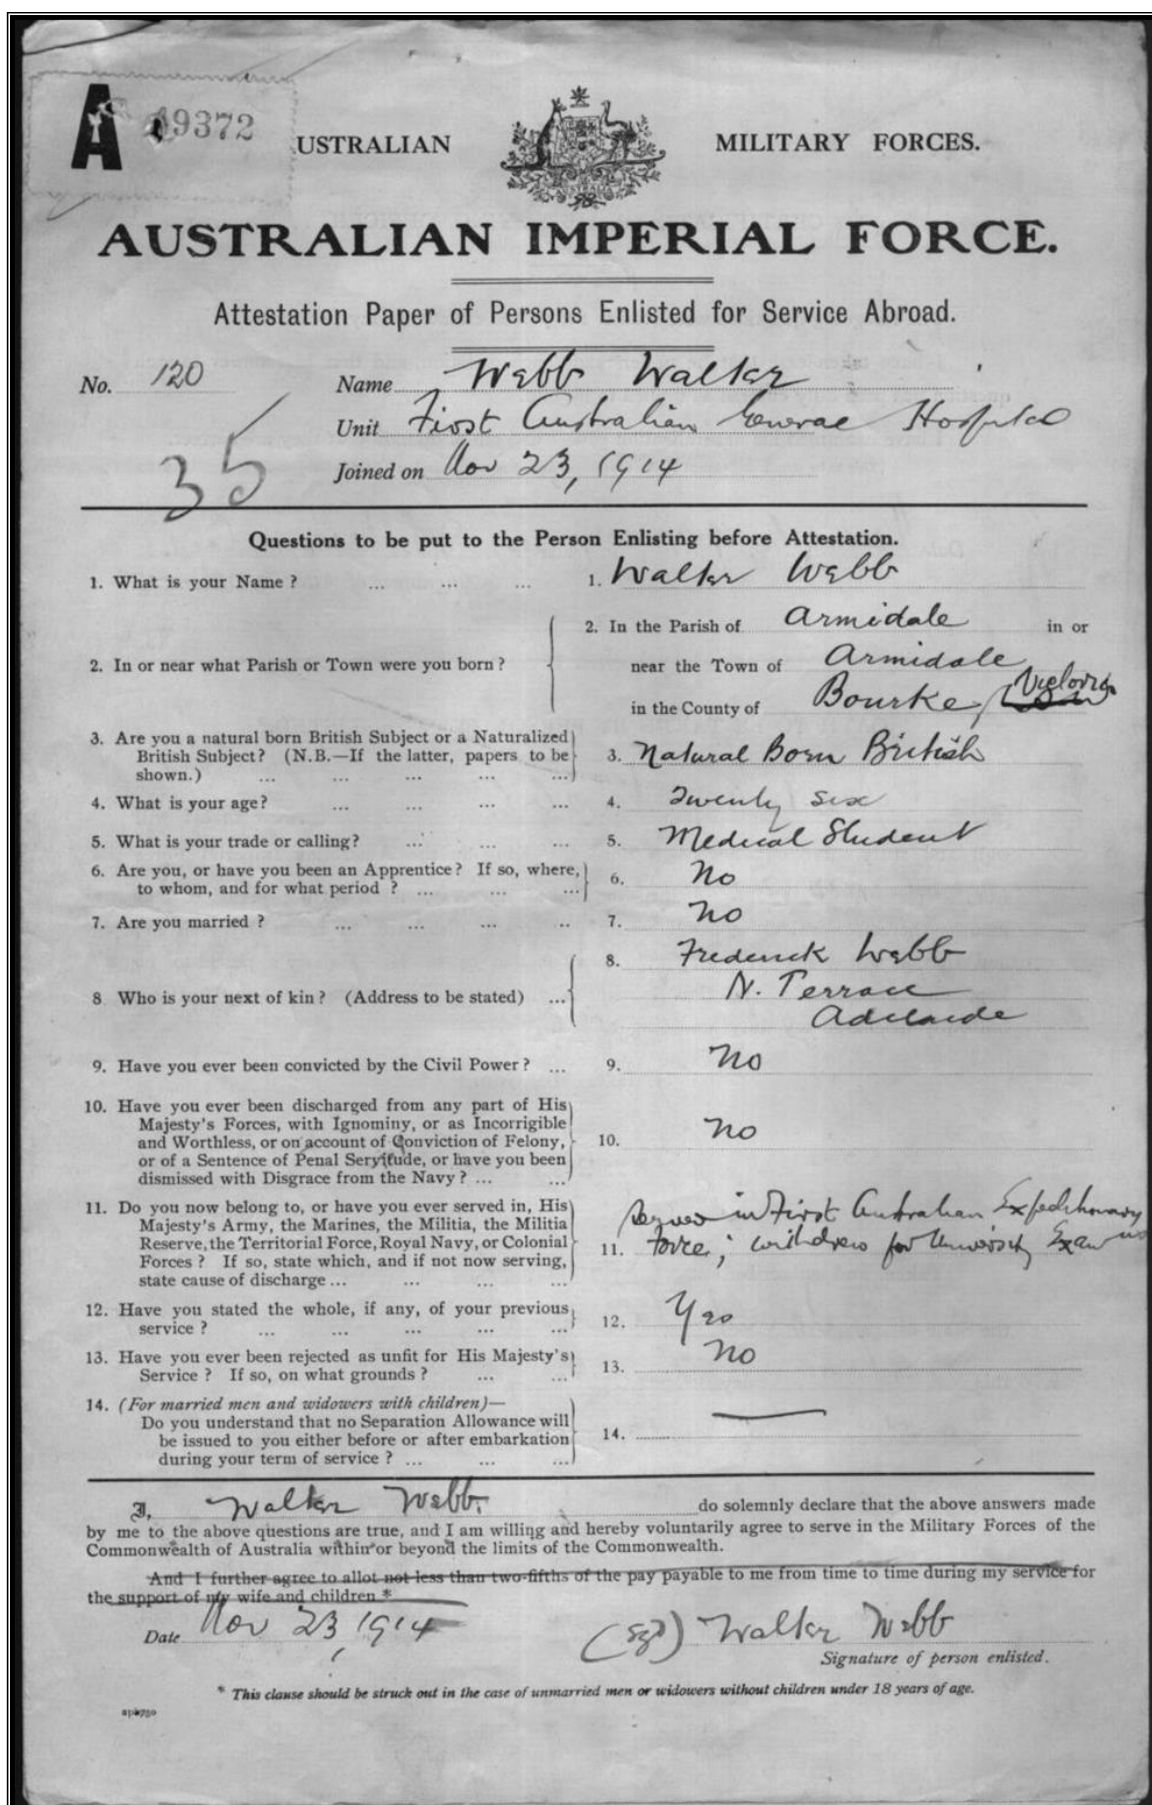 A 19372 USTRALIAN MILITARY FORCES.
AUSTRALIAN IMPERIAL FORCE.
Attestation Paper of Persons Enlisted for Service Abroad.
No. 120 Name Webb Walter
Unit First Australian General Hospital
35 Joined on Nov 23, 1914
Questions to be put to the Person Enlisting before Attestation.
1. What is your Name ? ... ... ... 1. Walter Webb
2. In the Parish of Armidale in or
2. In or near what Parish or Town were you born ? near the Town of Armidale
in the County of Bourke, Victoria
3. Are you a natural born British Subject or a Naturalized
British Subject? (N.B.—If the latter, papers to be 3. Natural Born British
shown.) ... ... ... ... ...
4. What is your age? ... ... ... ... 4. Twenty six
5. What is your trade or calling? ... ... ... 5. Medical Student
6. Are you, or have you been an Apprentice? If so, where, 6. No
to whom, and for what period ? ... ... ...
7. Are you married ? ... ... ... .. 7. No
8. Frederick Webb
8 Who is your next of kin ? (Address to be stated) ... N. Terrace
Adelaide
9. Have you ever been convicted by the Civil Power ? ... 9. No
10. Have you ever been discharged from any part of His
Majesty's Forces, with Ignominy, or as Incorrigible
and Worthless, or on account of Conviction of Felony, 10. No
or of a Sentence of Penal Servitude, or have you been
dismissed with Disgrace from the Navy ? ... ...
11. Do you now belong to, or have you ever served in, His Served in First Australian Expeditionary
Majesty's Army, the Marines, the Militia, the Militia
Reserve, the Territorial Force, Royal Navy, or Colonial 11. Force; withdrew for University Exams
Forces ? If so, state which, and if not now serving,
state cause of discharge ... ... ... ...
12. Have you stated the whole, if any, of your previous 12. Yes
service ? ... ... ... ... ...
13. Have you ever been rejected as unfit for His Majesty's 13. No
Service ? If so, on what grounds ? ... ...
14. (For married men and widowers with children)—
Do you understand that no Separation Allowance will
be issued to you either before or after embarkation 14.
during your term of service ? ... ... ...
I, Walter Webb. do solemnly declare that the above answers made
by me to the above questions are true, and I am willing and hereby voluntarily agree to serve in the Military Forces of the
Commonwealth of Australia within or beyond the limits of the Commonwealth.
And I further agree to allot not less than two-fifths of the pay payable to me from time to time during my service for
the support of my wife and children *
Date Nov 23, 1914 (Sgd) Walter Webb
Signature of person enlisted.
* This clause should be struck out in the case of unmarried men or widowers without children under 18 years of age.